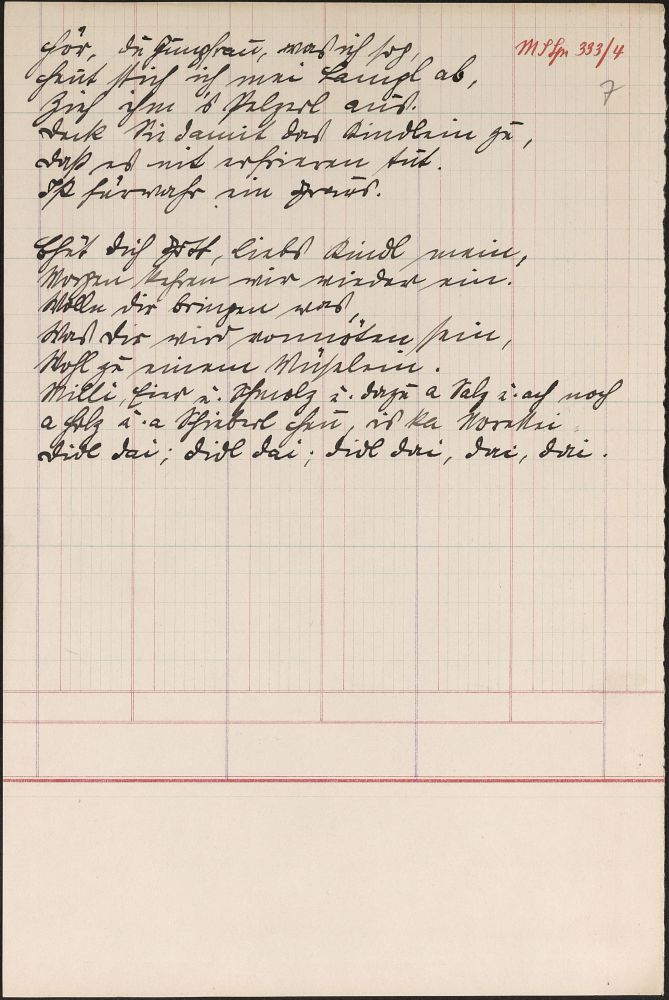 Hör, du Jungfrau, was ich sog,
MS Spr 333/4
Heut stich ich mei Lampl ab,
7
Zieh ihm 's Pelzerl aus.
Deck Sie damit das Kindlein zu,
Daß es nit erfrieren tut.
Ist fürwahr ein Graus.
Bhüt dich Gott, liebs Kindl mein,
Morgen kehren wir wieder ein.
Wölln dir bringen was,
Was Dir wird vonnöten sein,
Wohl zu einem Müselein.
Milli, Eier u. Schmolz u. dazu a Salz u. ach noch
a Holz u. a Schieberl Heu, is ka
Didl dai; didl dai; didl dai, dai, dai.